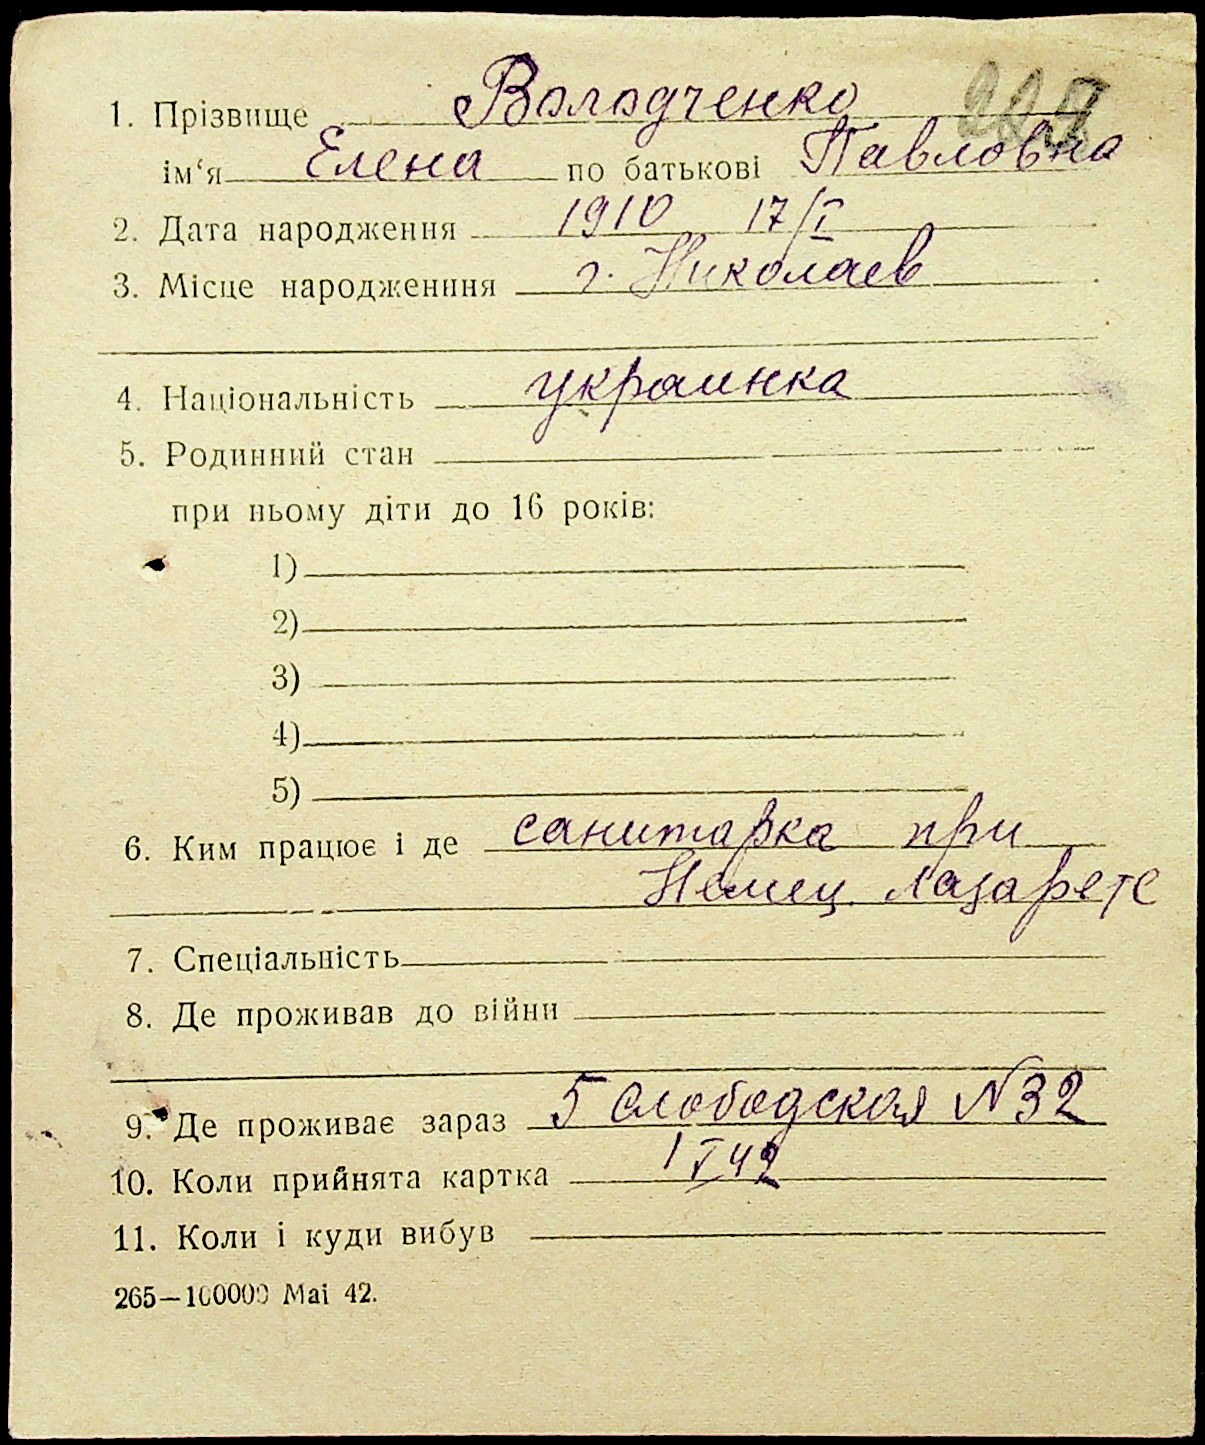 1. Прізвище Володченко
ім‘я Елена по батькові Павловна
2. Дата народження 1910 17/I
3. Місце народженння г. Николаев
4. Національність украинка
5. Родинний стан
при ньому діти до 16 років:
1)
2)
3)
4)
5)
6. Ким працює і де санитарка при
Немец. лазарете
7. Спеціальність
8. Де проживав до війни
9. Де проживає зараз 5 Слободская N 32
10. Коли прийнята картка 1 V 42
11. Коли і куди вибув
265—100000 Mai 42.